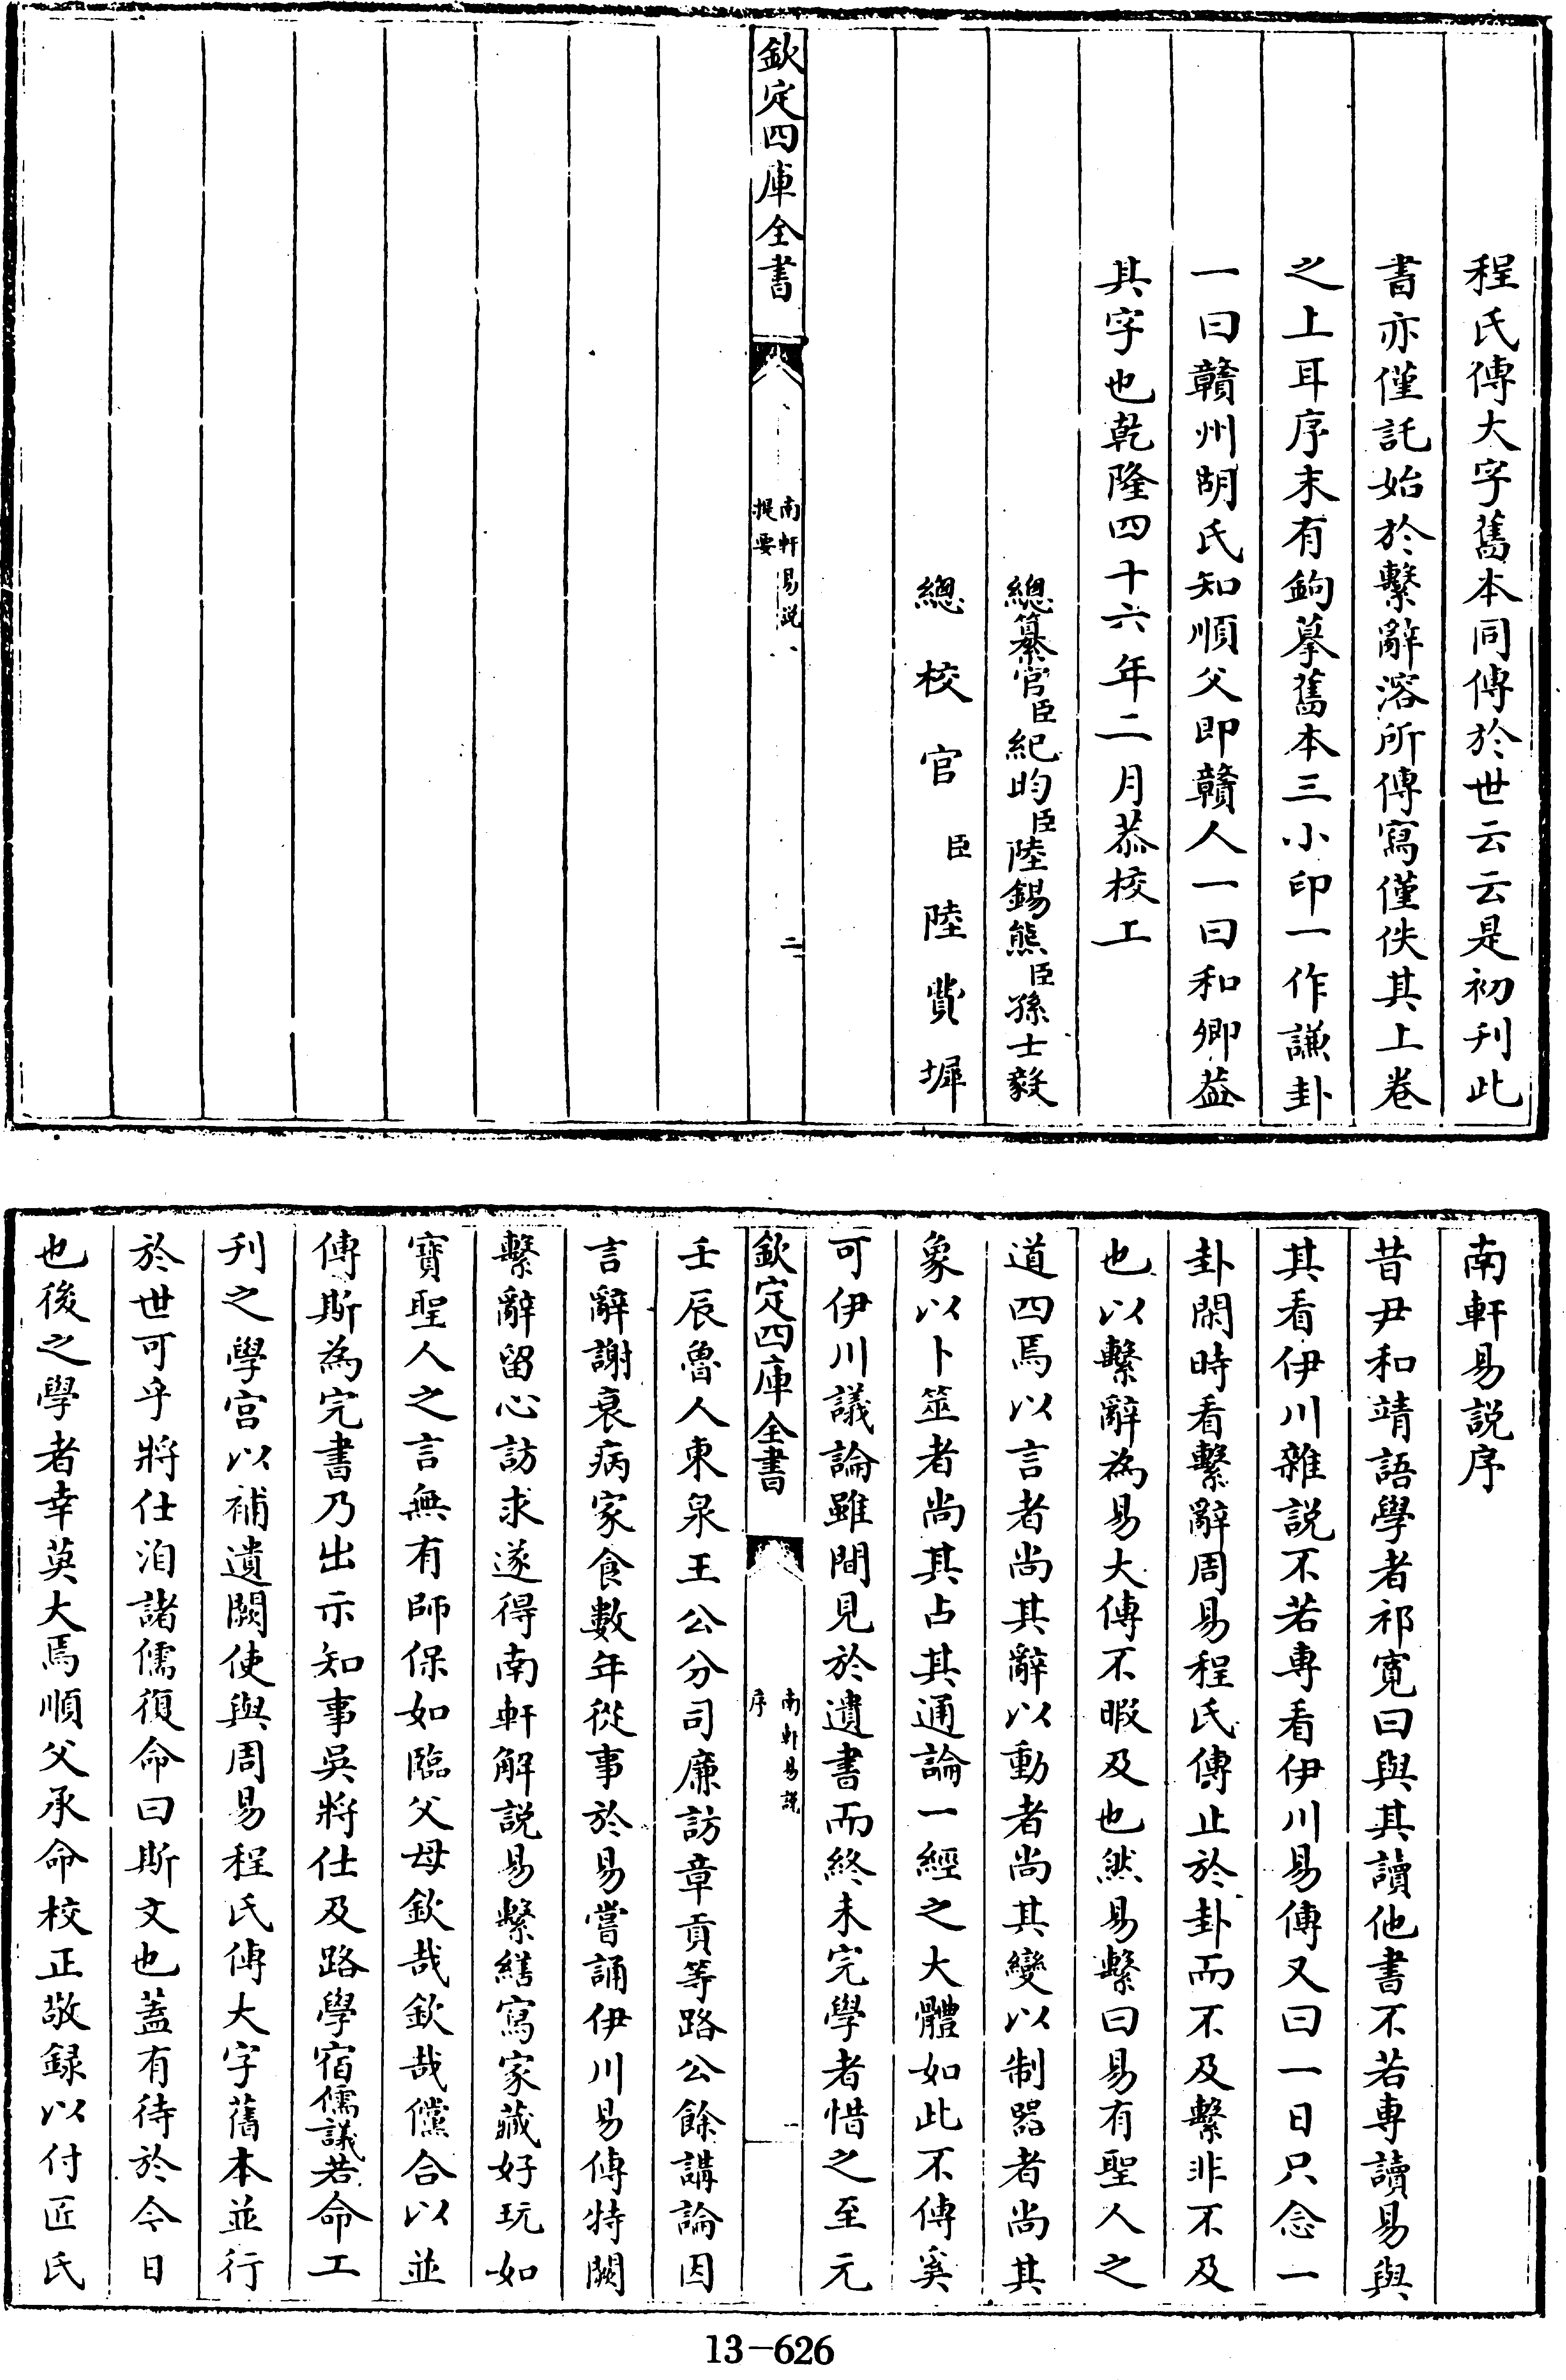 程氏傳大字舊本同傳於世云云是初刋此
書亦僅託始於繫辭溶所傳寫僅佚其上卷
之上耳序末有鉤摹舊本三小印一作謙卦
一曰贛州胡氏知順父即贛人一曰和卿葢
其字也乾隆四十六年二月恭校上
總纂官臣紀昀臣陸錫熊臣孫士毅
總校官臣陸費墀
欽定四庫全書
南軒易説
提要
二
南軒易説序
昔尹和靖語學者祁寛曰與其讀他書不若專讀易與
其看伊川雜説不若專看伊川易傳又曰一日只念一
卦閑時看繫辭周易程氏傳止於卦而不及繫非不及
也以繫辭為易大傳不暇及也然易繫曰易有聖人之
道四焉以言者尚其辭以動者尚其變以制器者尚其
象以卜筮者尚其占其通論一經之大體如此不傳奚
可伊川議論雖間見於遺書而終未完學者惜之至元
欽定四庫全書
南軒易説
序
一
壬辰魯人東泉王公分司廉訪章貢等路公餘講論因
言辭謝衰病家食數年從事於易嘗誦伊川易傳特闕
繫辭留心訪求遂得南軒解説易繫繕寫家藏好玩如
寶聖人之言無有師保如臨父母欽哉欽哉儻合以並
傳斯為完書乃出示知事吳將仕及路學宿儒議若命工
刋之學宫以補遺闕使與周易程氏傳大字舊本並行
於世可乎將仕洎諸儒復命曰斯文也蓋有待於今日
也後之學者幸英大焉順父承命校正敬録以付匠氏
13-626